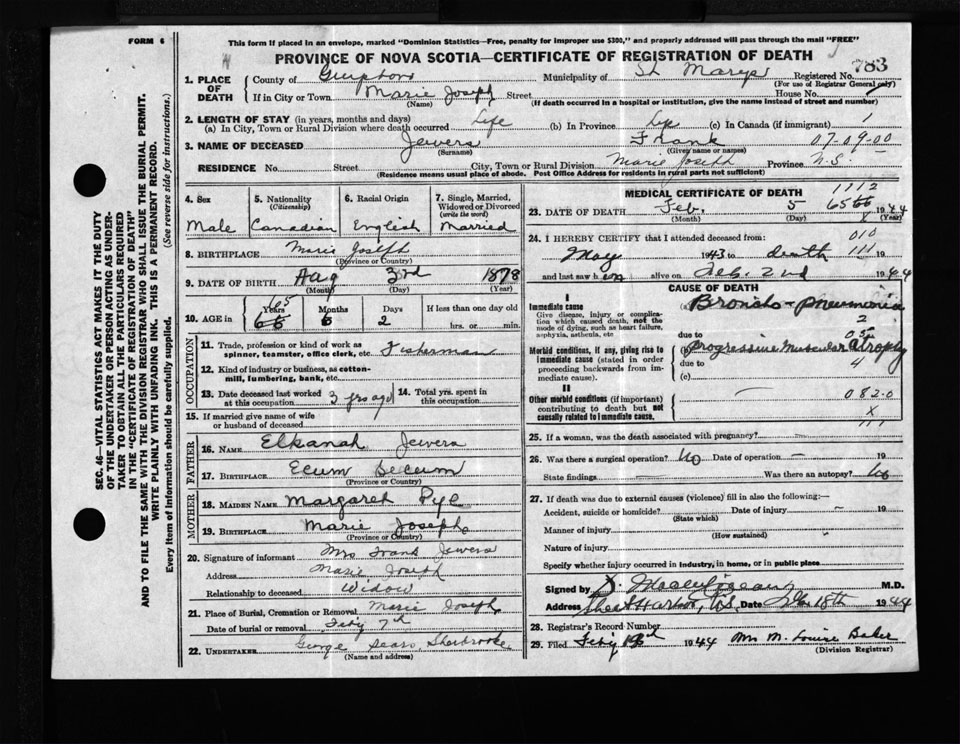 FORM 6
This form if placed in an envelope, marked "Dominion Statistics—Free, penalty for improper use $300," and properly addressed will pass through the mail "FREE"
PROVINCE OF NOVA SCOTIA—CERTIFICATE OF REGISTRATION OF DEATH
783
SEC. 46—VITAL STATISTICS ACT MAKES IT THE DUTY
OF THE UNDERTAKER OR PERSON ACTING AS UNDER-
TAKER TO OBTAIN ALL THE PARTICULARS REQUIRED
IN THE "CERTIFICATE OF REGISTRATION OF DEATH"
AND TO FILE THE SAME WITH THE DIVISION REGISTRAR WHO SHALL ISSUE THE BURIAL PERMIT.
WRITE PLAINLY WITH UNFADING INK. THIS IS A PERMANENT RECORD.
Every item of information should be carefully supplied. (See reverse side for instructions.)
1. PLACE OF DEATH
County of Guysboro Municipality of St Marys Registered No.
(For use of Registrar General only)
If in City or Town Marie Joseph Street House No.
(Name) (If death occurred in a hospital or institution, give the name instead of street and number)
2. LENGTH OF STAY (in years, months and days)
(a) In City, Town or Rural Division where death occurred Life (b) In Province Life (c) In Canada (if immigrant) 1
3. NAME OF DECEASED Jewers Frank 07-09-00
(Surname) (Given name or names)
RESIDENCE No. Street City, Town or Rural Division Marie Joseph Province N.S.
(Residence means usual place of abode. Post Office Address for residents in rural parts not sufficient)
4. Sex
Male
5. Nationality (Citizenship)
Canadian
6. Racial Origin
English
7. Single, Married, Widowed or Divorced (write the word)
Married
8. BIRTHPLACE Marie Joseph
(Province or Country)
9. DATE OF BIRTH Aug 3rd 1878
(Month) (Day) (Year)
10. AGE in Years Months Days If less than one day old
65 6 2 hrs. or min.
OCCUPATION
11. Trade, profession or kind of work as spinner, teamster, office clerk, etc. Fisherman
12. Kind of industry or business, as cotton-mill, lumbering, bank, etc.
13. Date deceased last worked at this occupation 3 yrs ago
14. Total yrs. spent in this occupation
15. If married give name of wife or husband of deceased
FATHER
16. NAME Elkanah Jewers
17. BIRTHPLACE Ecum Secum
(Province or Country)
MOTHER
18. MAIDEN NAME Margaret Pye
19. BIRTHPLACE Marie Joseph
(Province or Country)
20. Signature of informant Mrs Frank Jewers
Address Marie Joseph
Relationship to deceased Widow
21. Place of Burial, Cremation or Removal Marie Joseph
Date of burial or removal Feby 7th
22. UNDERTAKER George Sears Sherbrooke
(Name and address)
MEDICAL CERTIFICATE OF DEATH
1112
23. DATE OF DEATH Feb. 5 1944
(Month) (Day) (Year)
X
24. I HEREBY CERTIFY that I attended deceased from: 010
May 1943 to death 111
and last saw him alive on Feb. 2nd 1944
CAUSE OF DEATH
I
Immediate cause
Give disease, injury or complication which caused death, not the mode of dying, such as heart failure, asphyxia, asthenia, etc
Broncho-pneumonia
2
due to
Morbid conditions, if any, giving rise to immediate cause (stated in order proceeding backwards from immediate cause).
(b) Progressive Muscular Atrophy
due to 4
(c)
II
Other morbid conditions (if important) contributing to death but not causally related to immediate cause.
082-0
X
111
25. If a woman, was the death associated with pregnancy?
26. Was there a surgical operation? No Date of operation — 19
State findings Was there an autopsy? No
27. If death was due to external causes (violence) fill in also the following:—
Accident, suicide or homicide? Date of injury — 19
(State which)
Manner of injury
(How sustained)
Nature of injury
Specify whether injury occurred in industry, in home, or in public place
Signed by M.D.
Address Sheet Harbor, N.S. Date Feb. 18th 1944
28. Registrar's Record Number
29. Filed Feby 19th 1944 Mrs M. Louise Baker
(Division Registrar)